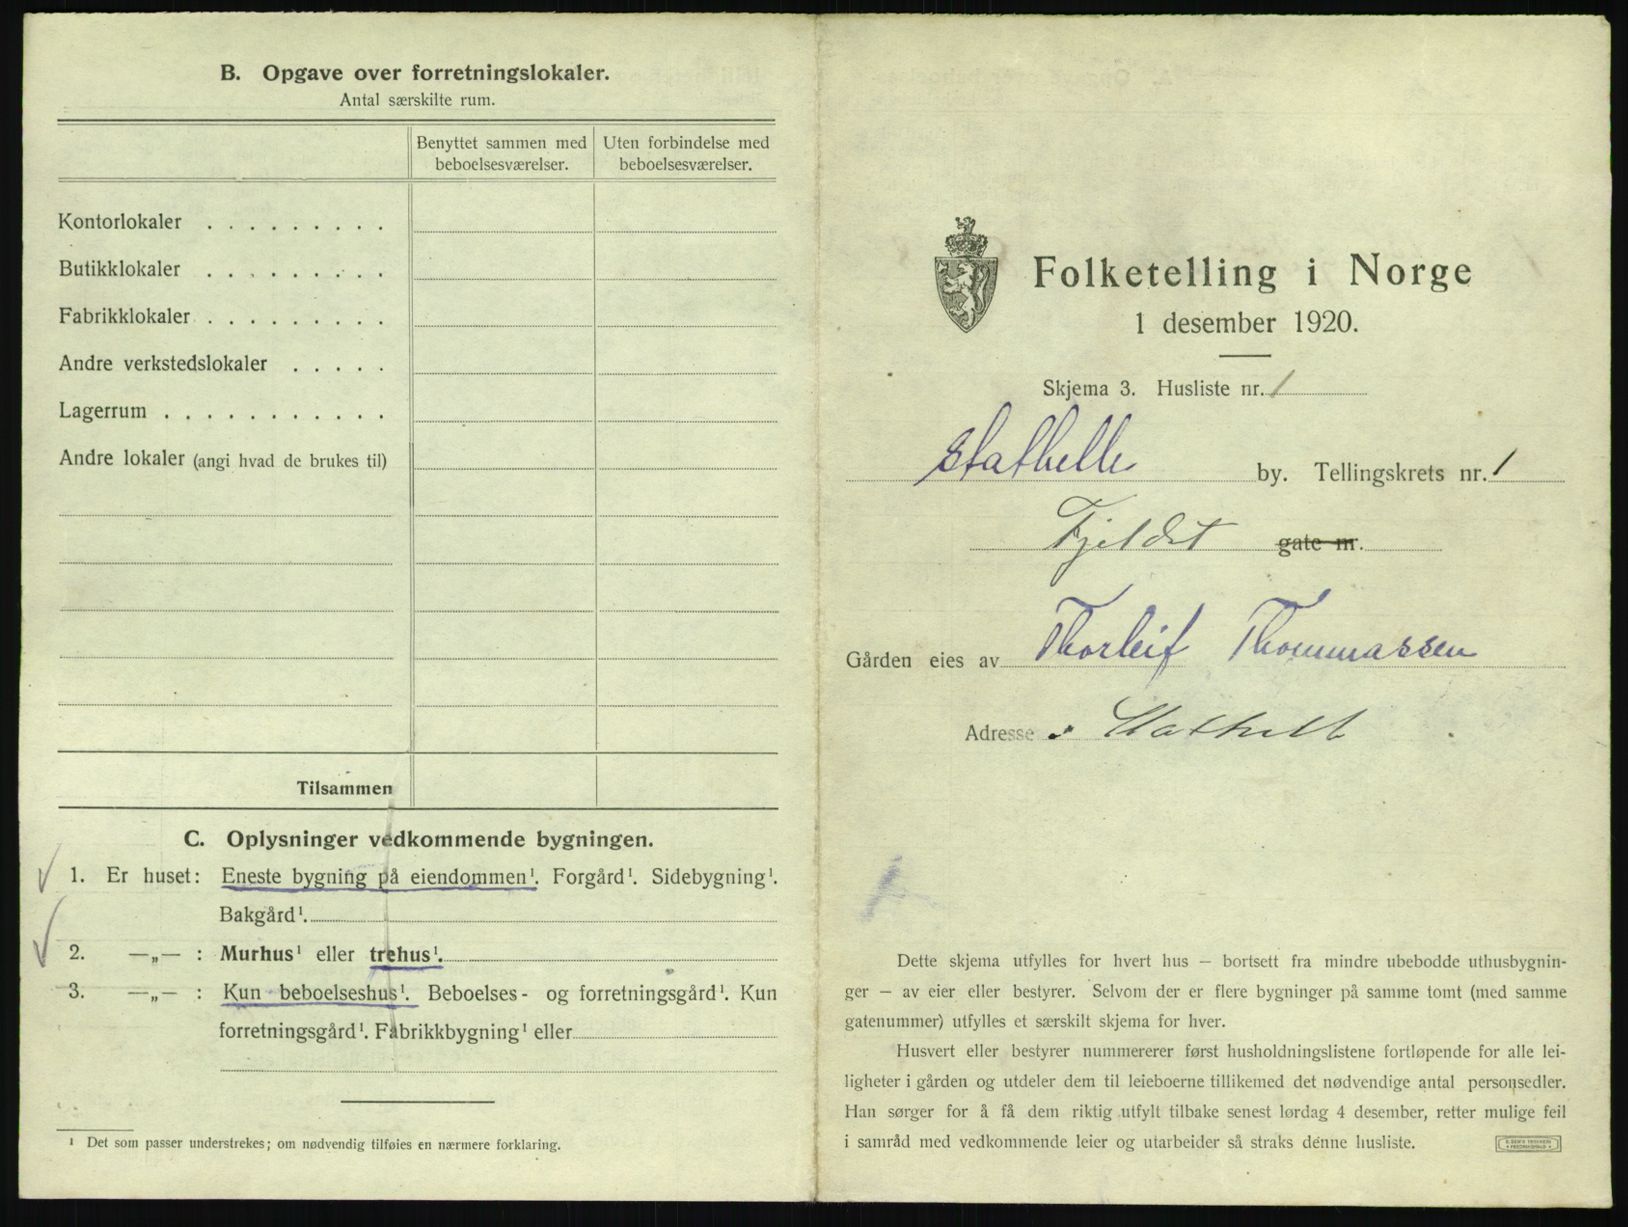 B. Opgave over forretningslokaler.
Antal særskilte rum.
Benyttet sammen med beboelsesværelser.
Uten forbindelse med beboelsesværelser.
Kontorlokaler . . . . . . . . .
Butikklokaler . . . . . . . . .
Fabrikklokaler . . . . . . . . .
Andre verkstedslokaler . . . . .
Lagerrum . . . . . . . . . . .
Andre lokaler (angi hvad de brukes til)
Tilsammen
C. Oplysninger vedkommende bygningen.
1. Er huset: Eneste bygning på eiendommen¹. Forgård¹. Sidebygning¹.
Bakgård¹.
2. —„— : Murhus¹ eller trehus¹.
3. —„— : Kun beboelseshus¹. Beboelses- og forretningsgård¹. Kun
forretningsgård¹. Fabrikkbygning¹ eller
¹ Det som passer understrekes; om nødvendig tilføies en nærmere forklaring.
Folketelling i Norge
1 desember 1920.
Skjema 3. Husliste nr. 1
Stathelle by. Tellingskrets nr. 1
Fjeldet gate nr.
Gården eies av Thorleif Thommassen
Adresse Stathelle
Dette skjema utfylles for hvert hus — bortsett fra mindre ubebodde uthusbygnin-
ger — av eier eller bestyrer. Selvom der er flere bygninger på samme tomt (med samme
gatenummer) utfylles et særskilt skjema for hver.
Husvert eller bestyrer nummererer først husholdningslistene fortløpende for alle lei-
ligheter i gården og utdeler dem til leieboerne tillikemed det nødvendige antal personsedler.
Han sørger for å få dem riktig utfylt tilbake senest lørdag 4 desember, retter mulige feil
i samråd med vedkommende leier og utarbeider så straks denne husliste.